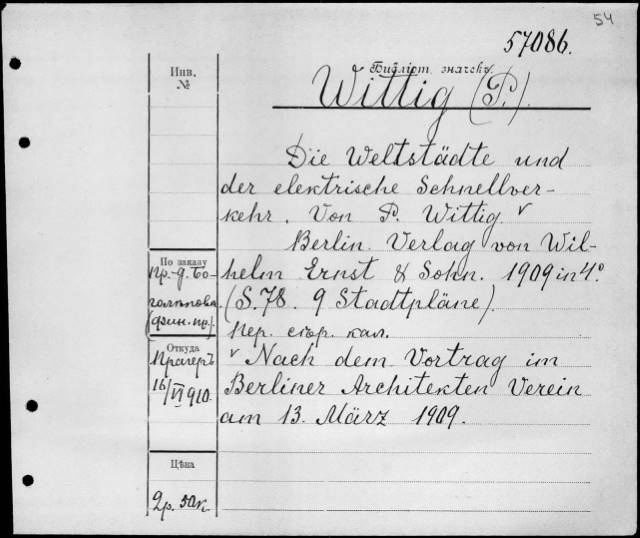 54
57086.
Библіот. значекъ
Wittig (P.).
Инв.
№
Die Weltstädte und
der elektrische Schnellver-
kehr. Von P. Wittig v
Berlin. Verlag von Wil-
helm Ernst & Sohn. 1909 in 4º
(S. 78. 9 Stadtpläne).
пер. стр. кал.
v Nach dem Vortrag im
Berliner Architekten Verein
am 13. März 1909.
По заказу
Пр.-д. Бо-
голѣпова.
(фин. пр.)
Откуда
Прагеръ
16/VI 910.
Цѣна
2р. 50к.